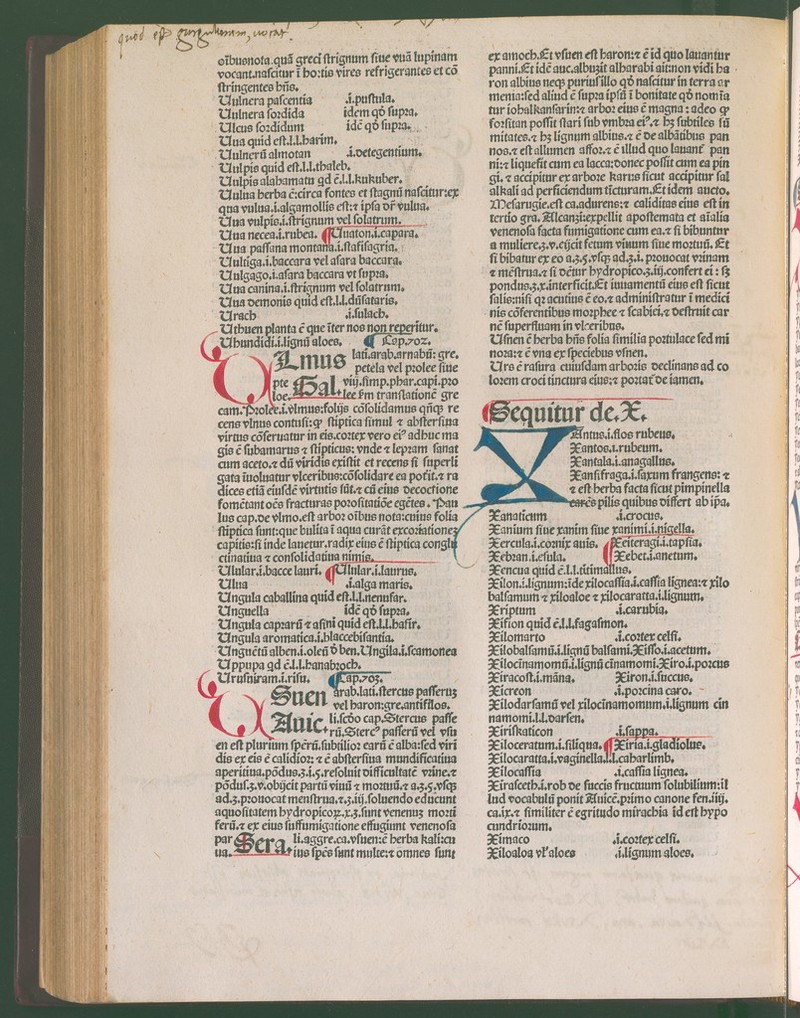 quod est gurgulionem, vocat.
oībusnota.quā greci strignum siue vuā lupinam
vocant.nascitur ī hortis vires refrigerantes et cō
stringentes hn̄s.
Uulnera pascentia .i.pustula.
Uulnera sordida idem qđ supra.
Ulcus sordidum idē qđ supra.
Uua quid est.l.l.harim.
Uulnerū almotan .i.detegentium.
Uulpis quid est.l.l.thaleb.
Uulpis alahamatu qd ē.l.l.kukuber.
Uulua herba ē:circa fontes et stagnū nascitur:ex
qua vulua.i.algamollis est:⁊ ipsa dr̄ vulua.
Uua vulpis.i.strignum vel solatrum.
Uua necea.i.rubea. ¶Uuaton.i.capara.
Uua passana montana.i.stafisagria.
Uultiga.i.baccara vel asara baccara.
Uulgago.i.asara baccara vt supra.
Uua canina.i.strignum vel solatrum.
Uua demonis quid est.l.l.dūsataris.
Urach .i.sulach.
Uthuen planta ē que īter nos non reperitur.
Uhundidi.i.lignū aloes. ¶ Cap.702.
Ulmus lati.arab.arnabū: gre.
petela vel prolee siue
pte Gal. viij.simp.phar.capi.pro
loe. lee sm translationē gre
cam.Prolee.i.vlmus:folijs cōsolidamus qn̄qꝫ re
cens vlnus contusi:qꝫ stiptica simul ⁊ abstersiua
virtus cōseruatur in eis.cortex vero eiꝰ adhuc ma
gis ē subamarus ⁊ stipticus: vnde ⁊ lepram sanat
cum aceto.⁊ dū viridis existit et recens si superli
gata inuoluatur vlceribus:cōsolidare ea potꝭt.⁊ ra
dices etiā eiusdē virtutis sūt.⁊ cū eius decoctione
fomētant oēs fracturas porositatiōe egētes. Pau
lus cap.de vlmo.est arbor oībus nota:cuius folia
stiptica sunt:que bulita ī aqua curāt excoriationeꝫ
capitis:si inde lauetur.radix eius ē stiptica conglu
ctinatiua ⁊ consolidatiua nimis.
Ulular.i.bacce lauri. ¶Ulular.i.laurus.
Ulua .i.alga maris.
Ungula caballina quid est.l.l.nenufar.
Unguella idē qđ supra.
Ungula caprarū ⁊ asini quid est.l.l.hafir.
Ungula aromatica.i.blaccebisantia.
Unguētū alben.i.oleū đ ben.Ungila.i.scamonea
Uppupa qd ē.l.l.hanabroch.
Urusniram.i.risu. ¶Cap.703.
Usuen arab.lati.stercus passeruꝫ
vel haron:gre.antifilos.
Auic. li.scđo cap.Stercus passe
rū.Stercꝰ passerū vel vsu
en est plurium spērū.subtilior earū ē alba:sed viri
dis ex eis ē calidior: ⁊ ē abstersiua mundificatiua
aperitiua.pōdus.ʒ.i.5.resoluit difficultatē vrine.⁊
pōdus.ʒ.v.obijcit partū viuū ⁊ mortuū.⁊ a.ʒ.5.vsqꝫ
ad.ʒ.prouocat menstrua.⁊.ʒ.iij.soluendo educunt
aquositatem hydropicoꝝ.x.ʒ.sunt venenuꝫ morti
ferū.⁊ ex eius suffumigatione effugiunt venenosa
par Sera. li.aggre.ca.vsuen:ē herba kali:cu
ua. ius spēs sunt multe:⁊ omnes sunt
ex amoch.Et vsuen est haron:⁊ ē id quo lauantur
panni.Et idē auc.albuzit alharabi ait:non vidi ha
ron albius neqꝫ puriusillo qđ nascitur in terra ar
menia:sed aliud ē supra ipsū ī bonitate qđ nomīa
tur iohalkansarin:⁊ arbor eius ē magna : adeo qꝫ
forsitan possit stari sub vmbra eiꝰ.⁊ hꝫ subtiles sū
mitates.⁊ hꝫ lignum albius.⁊ ē de albātibus pan
nos.⁊ est allumen affor.⁊ ē illud quo lauant̄ pan
ni:⁊ liquefit cum ea lacca:donec possit cum ea pin
gi. ⁊ accipitur ex arbore karus sicut accipitur sal
alkali ad perficiendum tīcturam.Et idem aucto.
Mesarugie.est ca.adurens:⁊ caliditas eius est in
tertio gra. Alcanzi:expellit apostemata et aīalia
venenosa facta fumigatione cum ea.⁊ si bibuntur
a muliere.ʒ.v.eijcit fetum viuum siue mortuū. Et
si bibatur ex eo a.ʒ.5.vsqꝫ ad.ʒ.i. prouocat vrinam
⁊ mēstrua.⁊ si detur hydropico.ʒ.iij.confert ei : sꝫ
pondus.ʒ.x.interficit.Et iuuamentū eius est sicut
salis:nisi qꝛ acutius ē eo.⁊ administratur ī medici
nis cōferentibus morphee ⁊ scabiei.⁊ destruit car
nē superfluam in vlceribus.
Usnen ē herba hn̄s folia similia portulace sed mi
nora:⁊ ē vna ex speciebus vsnen.
Urs ē rasura cuiusdam arboris declinans ad co
lorem croci tinctura eius:⁊ portat̄ de iamen.
¶Sequitur de.X.
XAntus.i.flos rubeus.
Xantos.i.rubeum.
Xantala.i.anagallus.
Xanfifraga.i.saxum frangens: ⁊
⁊ est herba facta sicut pimpinella
carēs pilis quibus differt ab ip̄a.
Xanaticum .i.crocus.
Xanium siue xanim siue xanimi.i.nigella.
Xercula.i.cornix auis. ¶Xeiteragi.i.tapsia.
Xebran.i.esula. ¶Xebet.i.anetum.
Xencua quid ē.l.l.titimallus.
Xilon.i.lignum:īde xilocassia.i.cassia lignea:⁊ xilo
balsamum ⁊ xiloaloe ⁊ xilocaratta.i.lignum.
Xriptum .i.carubia.
Xifion quid ē.l.l.fagasmon.
Xilomarto .i.cortex celsi.
Xilobalsamū.i.lignū balsami.Xisso.i.acetum.
Xilocīnamomū.i.lignū cīnamomi.Xiro.i.porcus
Xiracost.i.māna. Xiron.i.succus.
Xicreon .i.porcina caro.
Xilodarsamū vel xilocīnamomum.i.lignum cin
namomi.l.l.darsen.
Xiriskaticon .i.sappa.
Xiloceratum.i.siliqua. ¶Xiria.i.gladiolus.
Xilocaratta.i.vaginella.l.l.cabarlimb.
Xilocassia .i.cassia lignea.
Xirafceth.i.rob de succis fructuum solubilium:il
lud vocabulū ponit Auicē.primo canone fen.iiij.
ca.ix.⁊ similiter ē egritudo mirachia id est hypo
cundriorum.
Ximaco .i.cortex celsi.
Xiloaloa vl̓ aloes .i.lignum aloes.